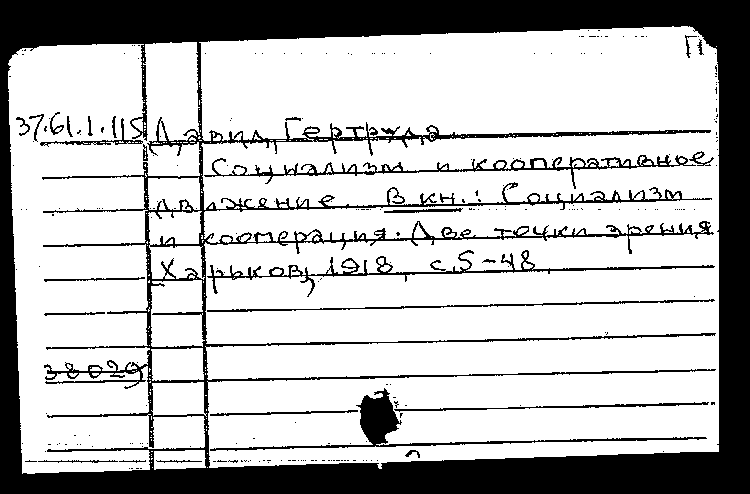 П
37.61.1.115 Давид, Гертруда.
Социализм и кооперативное
движение. В кн.: Социализм
и кооперация. Две точки зрения
Харьков, 1918, с.5-48.
38029